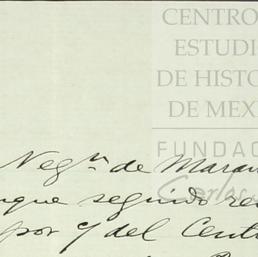 CENTRO
ESTUDI
DE HISTO
DE MEX
FUNDAC
Carlos
Neg.n de Maran
que seguido re
por c/ del Cent